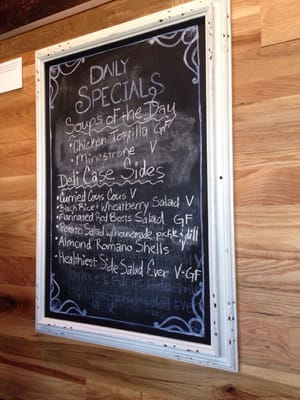 DAILY
SPECIALS
Soups of the Day
• Chicken Tortilla GF
• Minestrone V
Deli Case Sides
• Curried Cous Cous V
• Black Rice & Wheatberry Salad V
• Marinated Red Beets Salad GF
• Potato Salad w/ housemade pickle & dill
• Almond Romano Shells V
• Healthiest Side Salad Ever V-GF